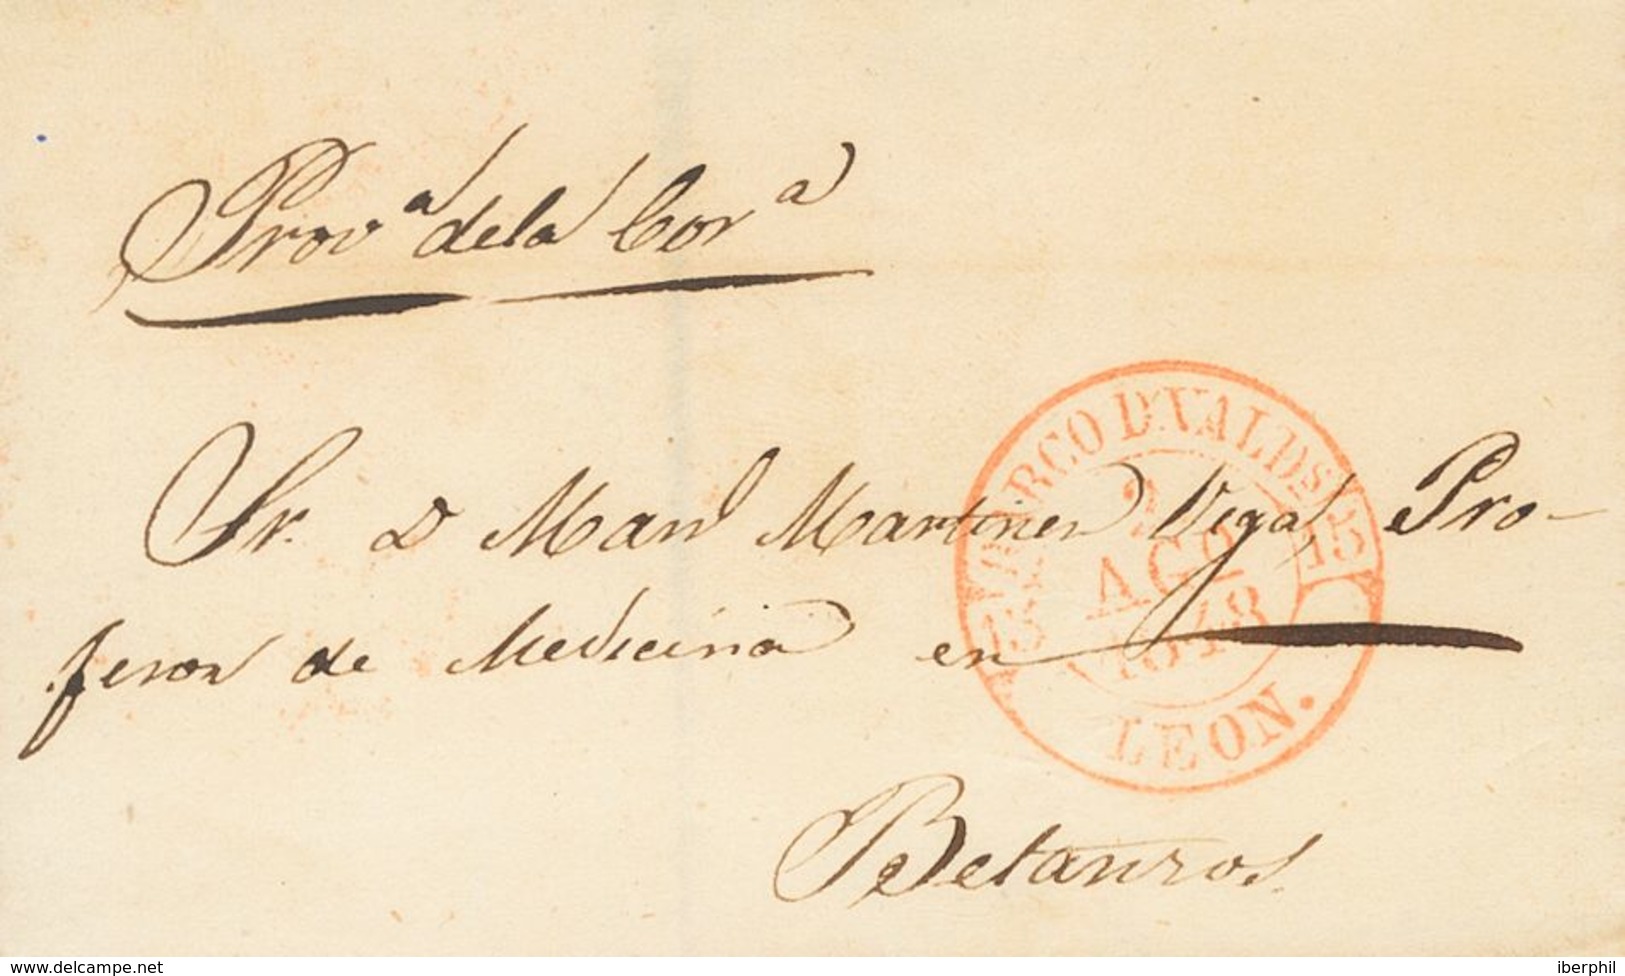 Prov.ª de la Cor.ª
Sr. D Manl Martinez Vega, Pro-
fesor de Medicina en
Betanzos.
BARCO D.VALDS
15
2
AGO
1848
15
LEON.
www.delcampe.net
iberphil